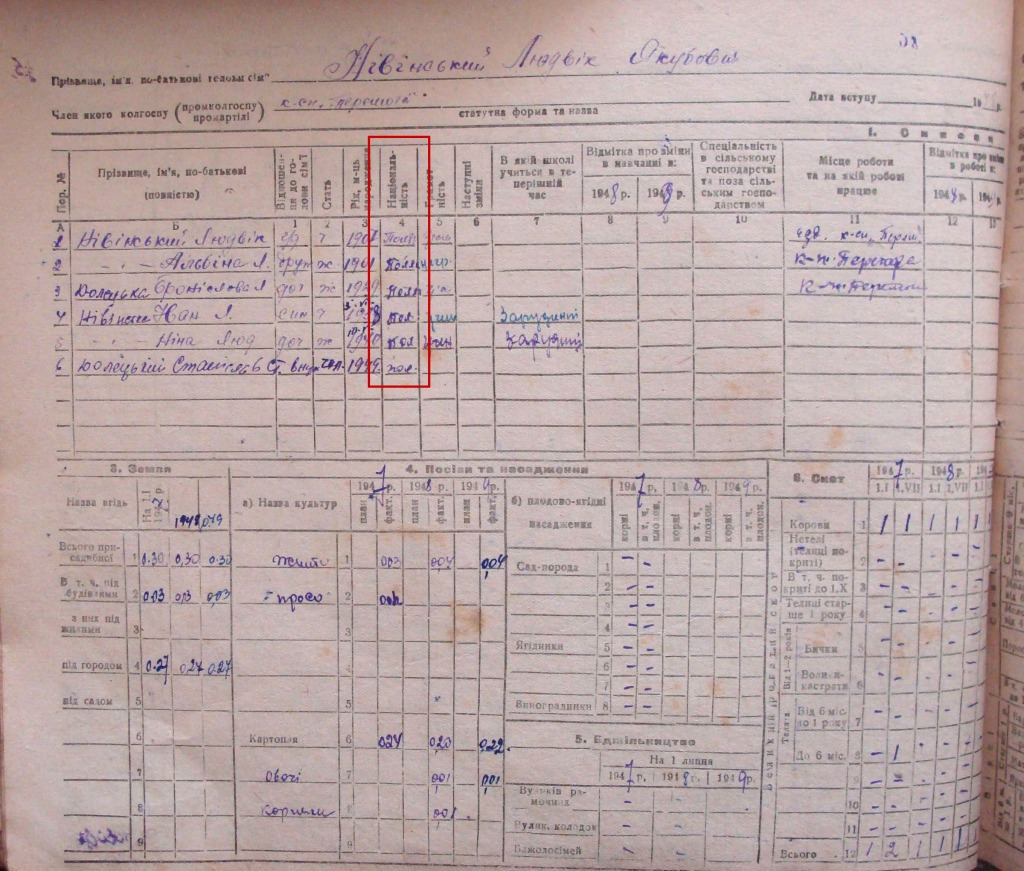 Нівінський Людвік Якубович
Прізвище, ім'я, по-батькові голови сім'ї
Член якого колгоспу (промколгоспу промартілі)
статутна форма та назва
Дата вступу 19 р.
Пор. №
Прізвище, ім'я, по-батькові (повністю)
Відношення до голови сім'ї
Стать
Рік, м-ць народження
Національність
Грамотність
Наступні зміни
В якій школі учиться в теперішній час
Відмітка про зміни в навчанні в:
1948 р. 1949 р.
Спеціальність в сільському господарстві та поза сільським господарством
Місце роботи та на якій роботі працює
Відмітка про зміни в роботі в:
1948 р.
А Б 1 2 3 4 5 6 7 8 9 10 11 12 13
1 Нівінський Людвік ч 1901
2 - " - Альвіна Л. ж 1901
3 Долецька Броніслава Л доч ж
4 Нівінськ Йан Л. син ч Пол
5 - " - Ніна Люд доч ж 1940 Пол
6 Долецький Станіслав Ст. внук 1949 пол
3. Земля
4. Посіви та насадження
Назва угідь
На 1.I 1947 р. 1948 1949
а) Назва культур
1947 р. 1948 р. 1949 р.
план факт. план факт. план факт.
б) плодово-ягідні насадження
1947 р. 1948 р. 1949 р.
корні в т. ч. плодон. корні в т. ч. плодон. корні в т. ч. плодон.
6. Скот
1947 р. 1948 р.
1.I 1.VII 1.I 1.VII 1.I
Великий рогатий скот
Всього присадибної 1 0.30 0,30 0.30
жито 1 0.03 0.04 0.04
Сад-порода 1 - -
Корови 1 1 1 1 1 1
Нетелі (телиці покриті) 2
В т. ч. під будівлями 2 0.03 0.03 0.03
просо 2
2 - -
В т. ч. покриті до 1.X 3
з них під жилими 3
3
3 - -
Телиці старше 1 року 4
4 - -
Від 1—2 років
Бички 5
під городом 4 0.27 0.27 0.27
4
Ягідники 5 - -
6 - -
Воли-кастрати 6
під садом 5
5
7 - -
Виноградники 8 - -
Телята
Від 6 міс. до 1 року 7
6
Картопля 6 0.24 0.20 0.22
5. Бджільництво
На 1 липня
1947 р. 1948 р. 1949 р.
До 6 міс. 8 - 1
7
овочі 7 0.01 0.01
Вуликів рамочних
9
8
8 0.01
10
Вулик. колодок
11
9
9
Бджолосімей
Всього 12 1 2 1 1 1